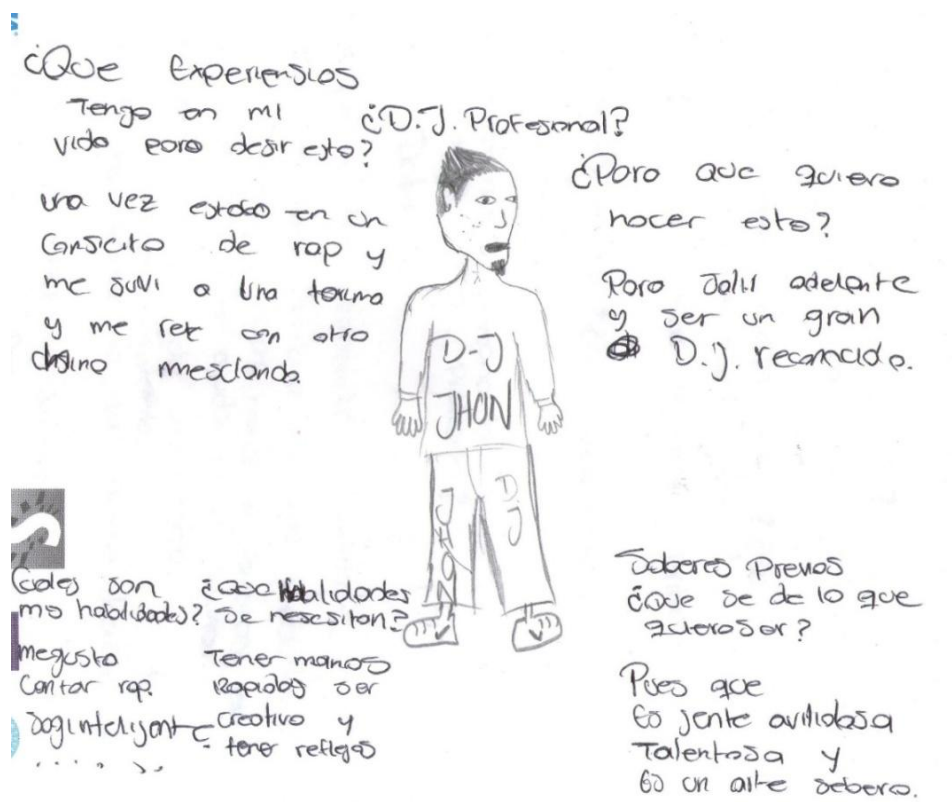 ¿Que Experiensias
Tengo en mi
vida para desir esto?
una vez estaba en un
Consierto de rap y
me suvi a una tarima
y me rete con otro
chaino mesclando.
¿D.J. Profesional?
D-J
JHON
D.J
JHON
¿Para que quiero
hacer esto?
Para Salir adelante
y ser un gran
D.J. reconocido.
Cuales son
mis habalidades?
me gusta
Cantar rap.
soy intelijente
¿Que Habalidades
se nescsitan?
Tener manos
Rapidas ser
Creativo y
tener reflejos
Saberes Previos
¿Que se de lo que
quiero ser?
Pues que
Es jente avilidosa
Talentosa y
Es un arte sebero.